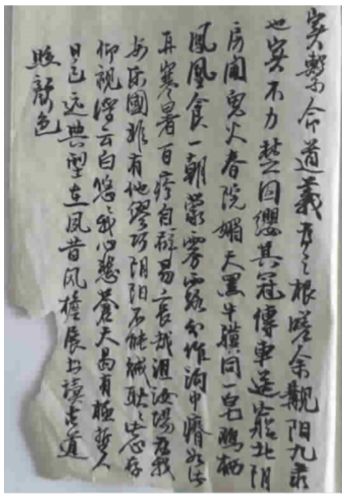 實繫命道義為之根嗟余覯陽九隸
也實不力楚囚纓其冠傳車送窮北陰
房闃鬼火春院媚天黑牛驥同一皂鷄栖
鳳凰食一朝蒙霧露分作溝中瘠如此
再寒暑百疹自辟易沮洳場為我
安樂國非有他謬巧陰陽不能賊耿々存
仰視浮云白悠々我心悲蒼天曷有極哲人
日已遠典型在夙昔風檐展書讀古道
照顏色